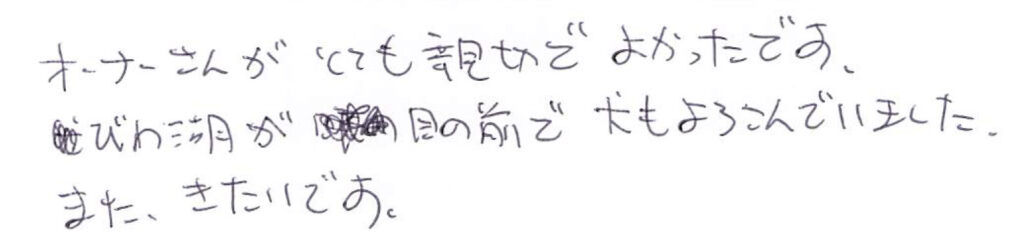 オーナーさんが とても親切で よかったです、
びわ湖が 目の前で 犬もよろこんでいました.
また、きたいです。